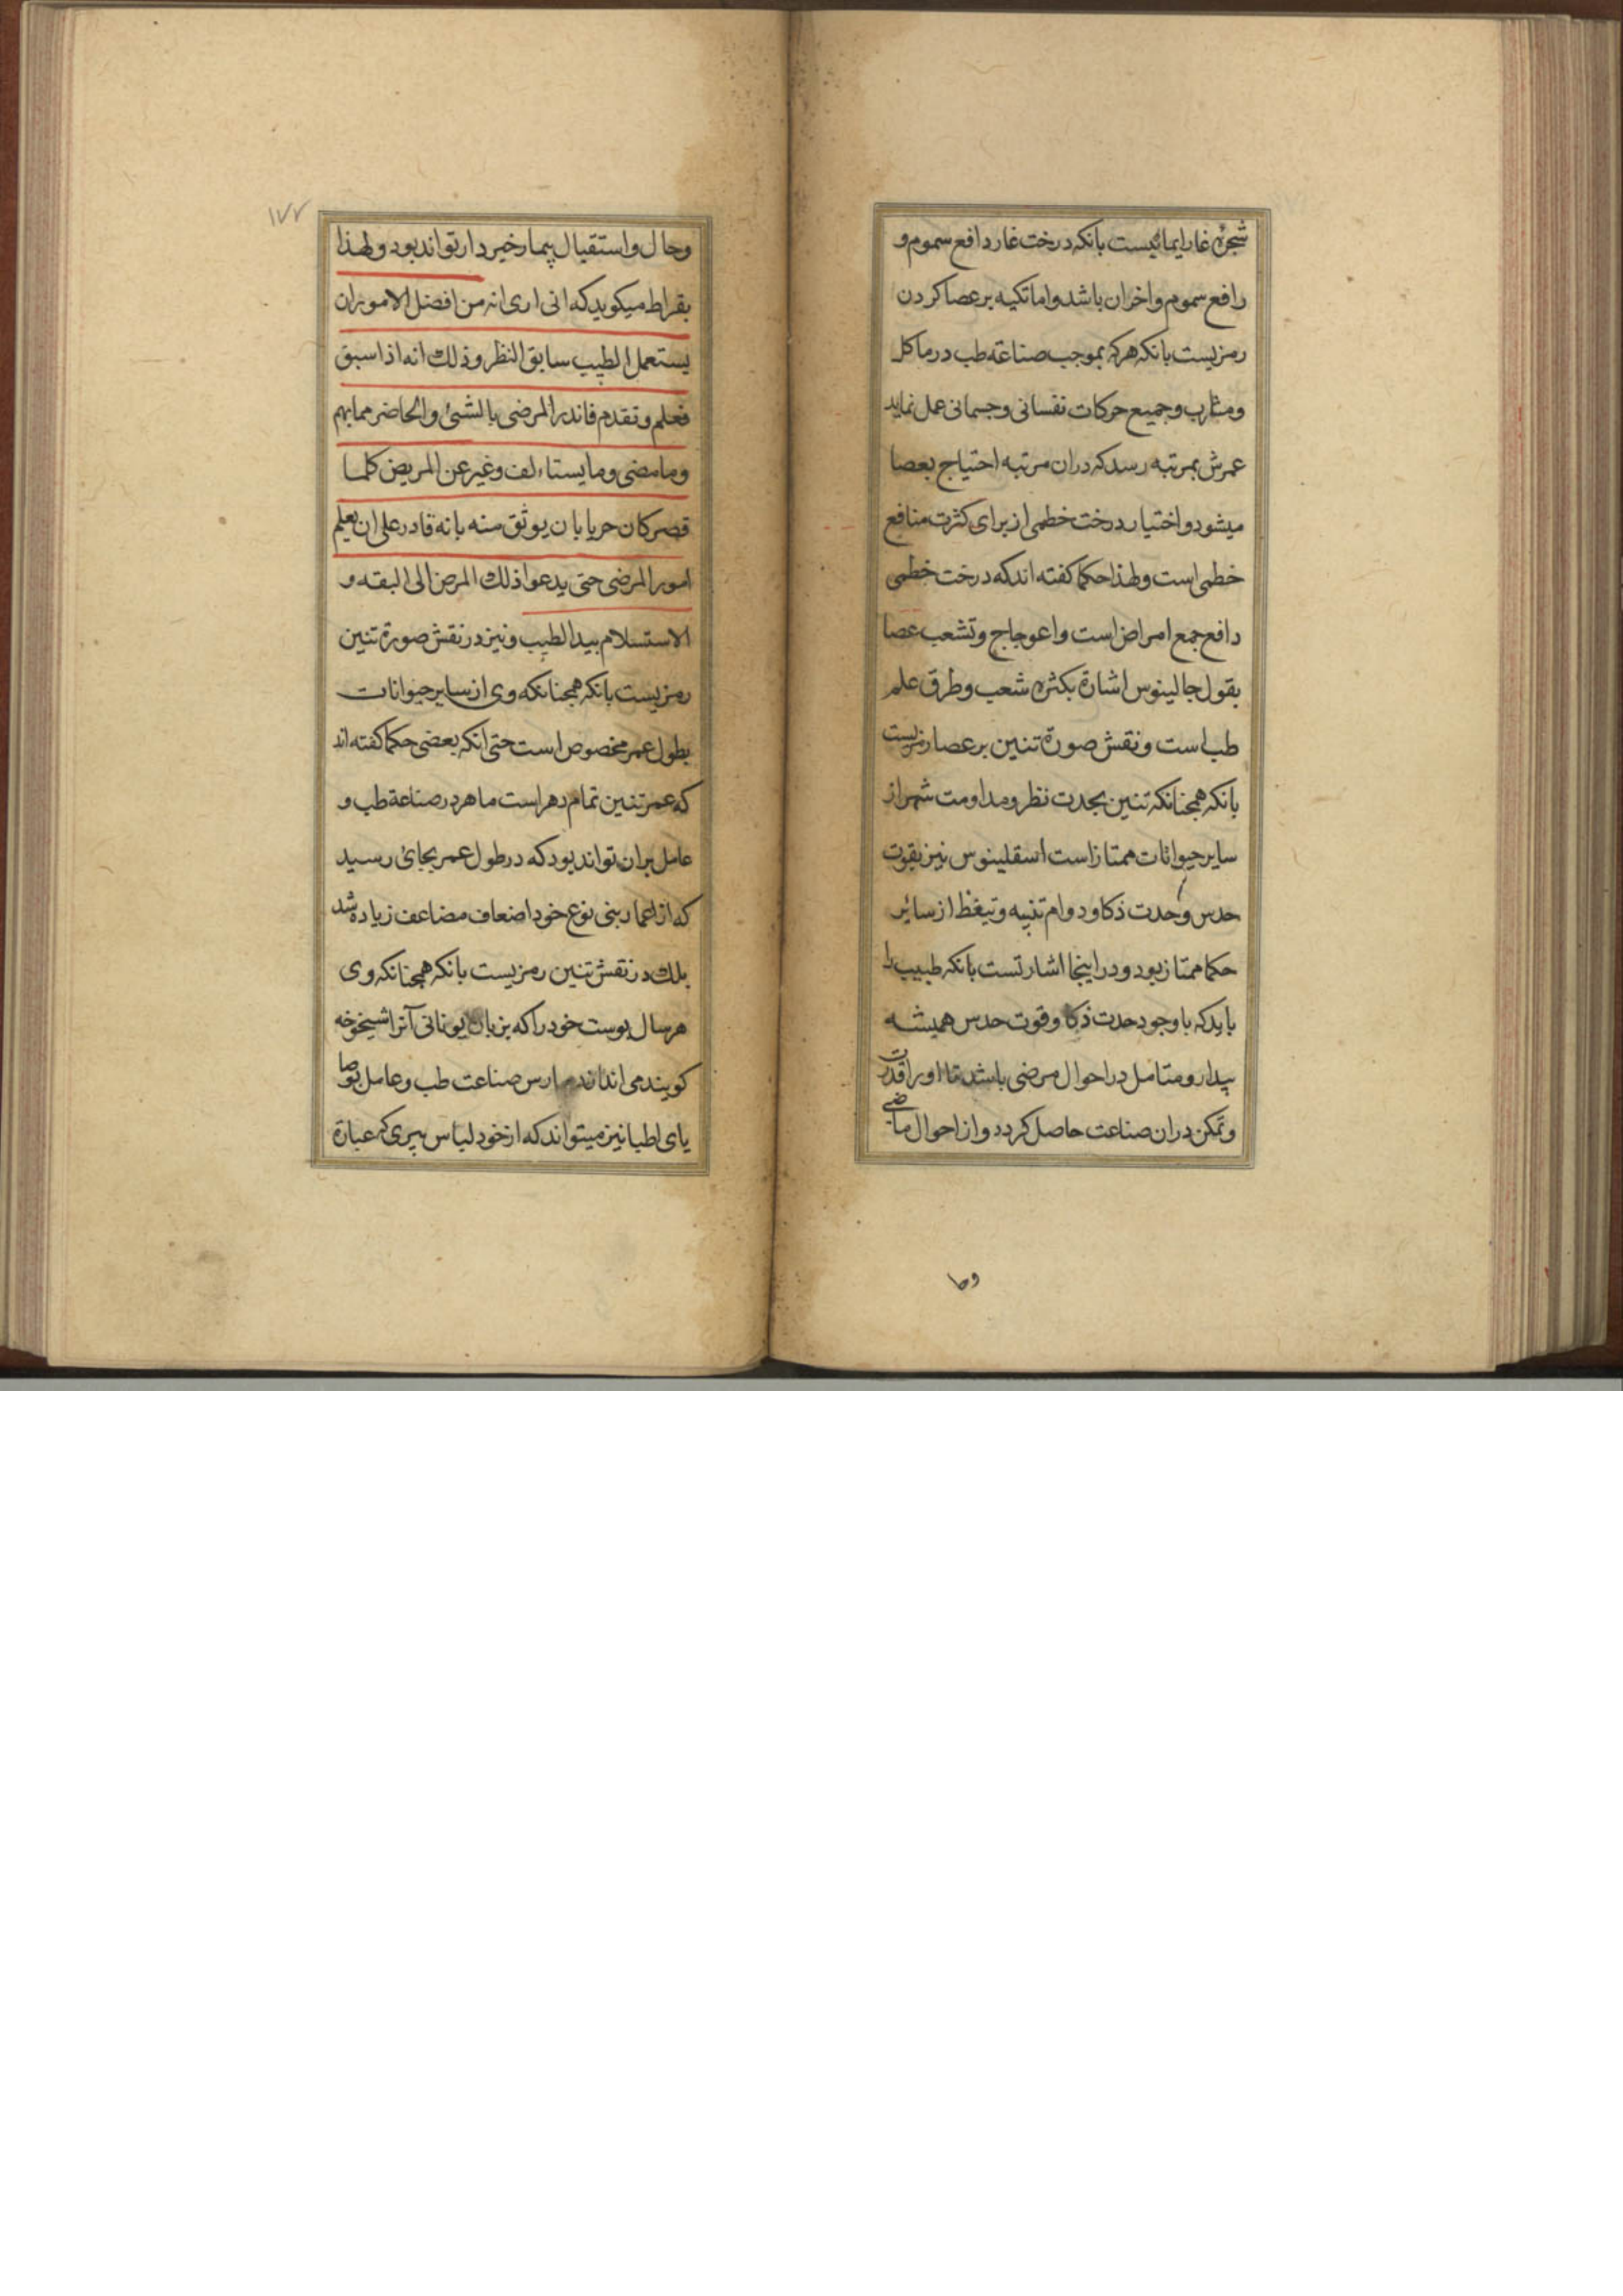 شجرهٔ غار ایمائیست بانکه درخت غار دافع سموم و
رافع سموم واخران باشد واما تکیه بر عصا کردن
رمزیست بانکه هرکه بموجب صناعة طب در ماکل
ومشارب وجمیع حرکات نفسانی وجسمانی عمل نماید
عمرش بمرتبه رسد که دران مرتبه احتیاج بعصا
میشود واختیار درخت خطمی از برای کثرت منافع
خطمی است ولهذا حکما کفته اند که درخت خطمی
دافع جمع امراض است واعوجاج وتشعب عصا
بقول جالینوس اشارة بکثرة شعب وطرق علم
طب است ونقش صورة تنین بر عصا رمزیست
بانکه همجنانکه تنین بحدت نظر ومداومت شهر از
سایر حیوانات ممتاز است اسقلینوس نیز بقوت
حدس وحدت ذکا ودوام تنبیه وتیغظ از سائر
حکما ممتاز بود ودر اینجا اشارتست بانکه طبیب را
باید که با وجود حدت ذکا وقوت حدس همیشه
بیدار ومتامل در احوال مرضی باشد تا اورا قدرت
وتمکن دران صناعت حاصل کردد واز احوال ماضی
وحا
۱۷۷
وحال واستقبال بیمار خبردار تواند بود ولهذا
بقراط میکوید که انی اری انه من افضل الامور ان
یستعمل الطبیب سابق النظر وذلك انه اذا سبق
فعلم وتقدم فاندر المرضی بالشیئ والحاضر مما بهم
وما مضی وما یستاءلف وغیر عن المریض کلما
قصر کان حریا بان یوثق منه بانه قادر علی ان یعلم
امور المرضی حتی یدعوا ذلك المرض الی البقه و
الاستسلام بید الطبیب ونیز در نقش صورة تنین
رمزیست بانکه همجنانکه وی از سایر حیوانات
بطول عمر مخصوص است حتی انکه بعضی حکما کفته اند
که عمر تنین تمام دهر است ماهر در صناعة طب و
عامل بران تواند بود که در طول عمر بجائ رسید
که از اعمار بنی نوع خود اضعاف مضاعف زیاده شد
بلك در نقش تنین رمزیست بانکه همجنانکه وی
هر سال پوست خود را که بزبان یونانی آنرا شیخوخه
کویند می اندازد ممارس صناعت طب وعامل بوصا
یای اطبا نیز میتواند که از خود لباس پیری که عبارة